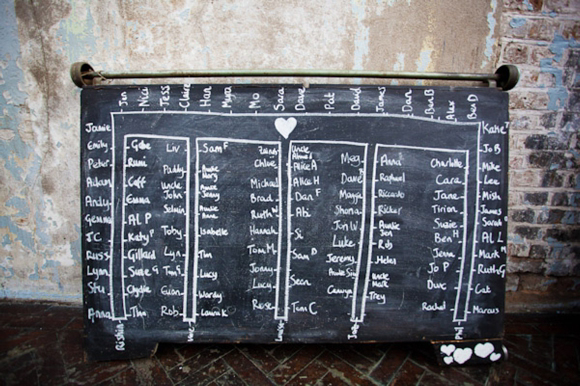 Jon Nici Tess Claire Han Myra Mo Sara Dave Pat David James Dan Ben B Alex Ben D
Jamie
Emily
Peter
Adam
Andy
Gemma
JC
Russ
Lynn
Stu
Anna
Gabe
Rumi
Caff
Emma
Al P
Katy P
Gillard
Susie G
Clydie
Tho
Liv
Paddy
Uncle John
Selwin
Toby
Lyn
Tim S
Euan
Rob
Sam F
Auntie Mary
Auntie Jenny
Auntie Anne
Isabelle
Tim
Lucy
Wardy
Laurie K
Chloe
Michael
Brad
Ruth
Hannah
Tom M
Jonny
Lucy
Rosie
Alice A
Alice H
Dan F
Abi
Si
Sam D
Sean
Tom C
Meg
Dave
Maggie
Shona
Jon W
Luke
Jeremy
Auntie Sis
Camryn
Anna
Raphael
Riccardo
Richer
Auntie Sen
Rob
Helen
Uncle Mark
Trey
Charlotte
Cara
Jane
Tirion
Suzie
Ben H
Jenna
Jo P
Duvc
Rachel
Kate T
Jo B
Mike
Lee
Mish
James
Sarah
AL L
Mark
Ruth G
Cat
Marcus